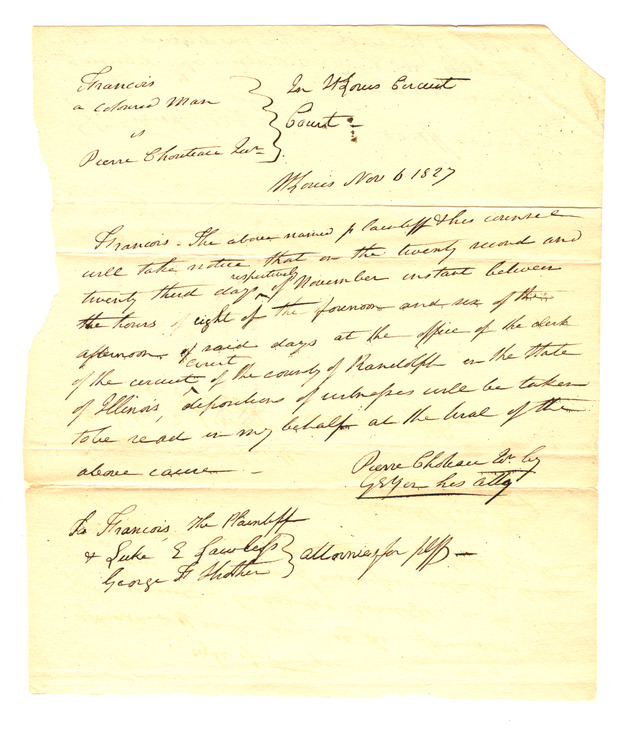 Francois
a coloured Man
vs
Pierre Chouteau Junr
In St Louis Circuit
Court -
St Louis Nov 6 1827
Francois - The above named plaintiff & his counsel
will take notice that on the twenty second and
twenty third days respectively of November instant between
the hours of eight of the forenoon and six of the
afternoon of said days at the office of the clerk
of the circuit court of the county of Randolph in the State
of Illinois, depositions of witnesses will be taken
to be read in my behalf at the trial of the
above cause -
Pierre Choteau Jr by
his atty
To Francois, the Plaintiff
& Luke E Lawless
George F Strother
attornies for plff -